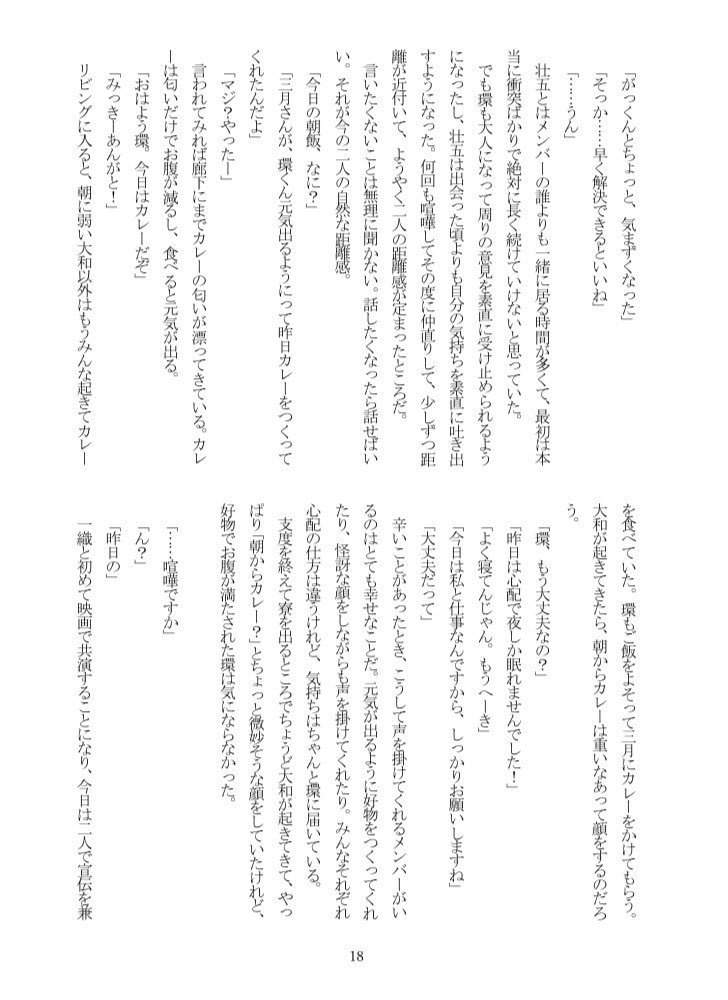 「がっくんとちょっと、気まずくなった」
「そっか……早く解決できるといいね」
「……うん」
壮五とはメンバーの誰よりも一緒に居る時間が多くて、最初は本
当に衝突ばかりで絶対に長く続けていけないと思っていた。
でも環も大人になって周りの意見を素直に受け止められるよう
になったし、壮五は出会った頃よりも自分の気持ちを素直に吐き出
すようになった。何回も喧嘩してその度に仲直りして、少しずつ距
離が近付いて、ようやく二人の距離感が定まったところだ。
言いたくないことは無理に聞かない。話したくなったら話せばい
い。それが今の二人の自然な距離感。
「今日の朝飯、なに？」
「三月さんが、環くん元気出るようにって昨日カレーをつくって
くれたんだよ」
「マジ？やったー」
言われてみれば廊下にまでカレーの匂いが漂ってきている。カレ
ーは匂いだけでお腹が減るし、食べると元気が出る。
「おはよう環。今日はカレーだぞ」
「みっきーあんがと！」
リビングに入ると、朝に弱い大和以外はもうみんな起きてカレー
を食べていた。環もご飯をよそって三月にカレーをかけてもらう。
大和が起きてきたら、朝からカレーは重いなあって顔をするのだろ
う。
「環、もう大丈夫なの？」
「昨日は心配で夜しか眠れませんでした！」
「よく寝てんじゃん。もうへーき」
「今日は私と仕事なんですから、しっかりお願いしますね」
「大丈夫だって」
辛いことがあったとき、こうして声を掛けてくれるメンバーがい
るのはとても幸せなことだ。元気が出るように好物をつくってくれ
たり、怪訝な顔をしながらも声を掛けてくれたり。みんなそれぞれ
心配の仕方は違うけれど、気持ちはちゃんと環に届いている。
支度を終えて寮を出るところでちょうど大和が起きてきて、やっ
ぱり「朝からカレー？」とちょっと微妙そうな顔をしていたけれど、
好物でお腹が満たされた環は気にならなかった。
「……喧嘩ですか」
「ん？」
「昨日の」
一織と初めて映画で共演することになり、今日は二人で宣伝を兼
18